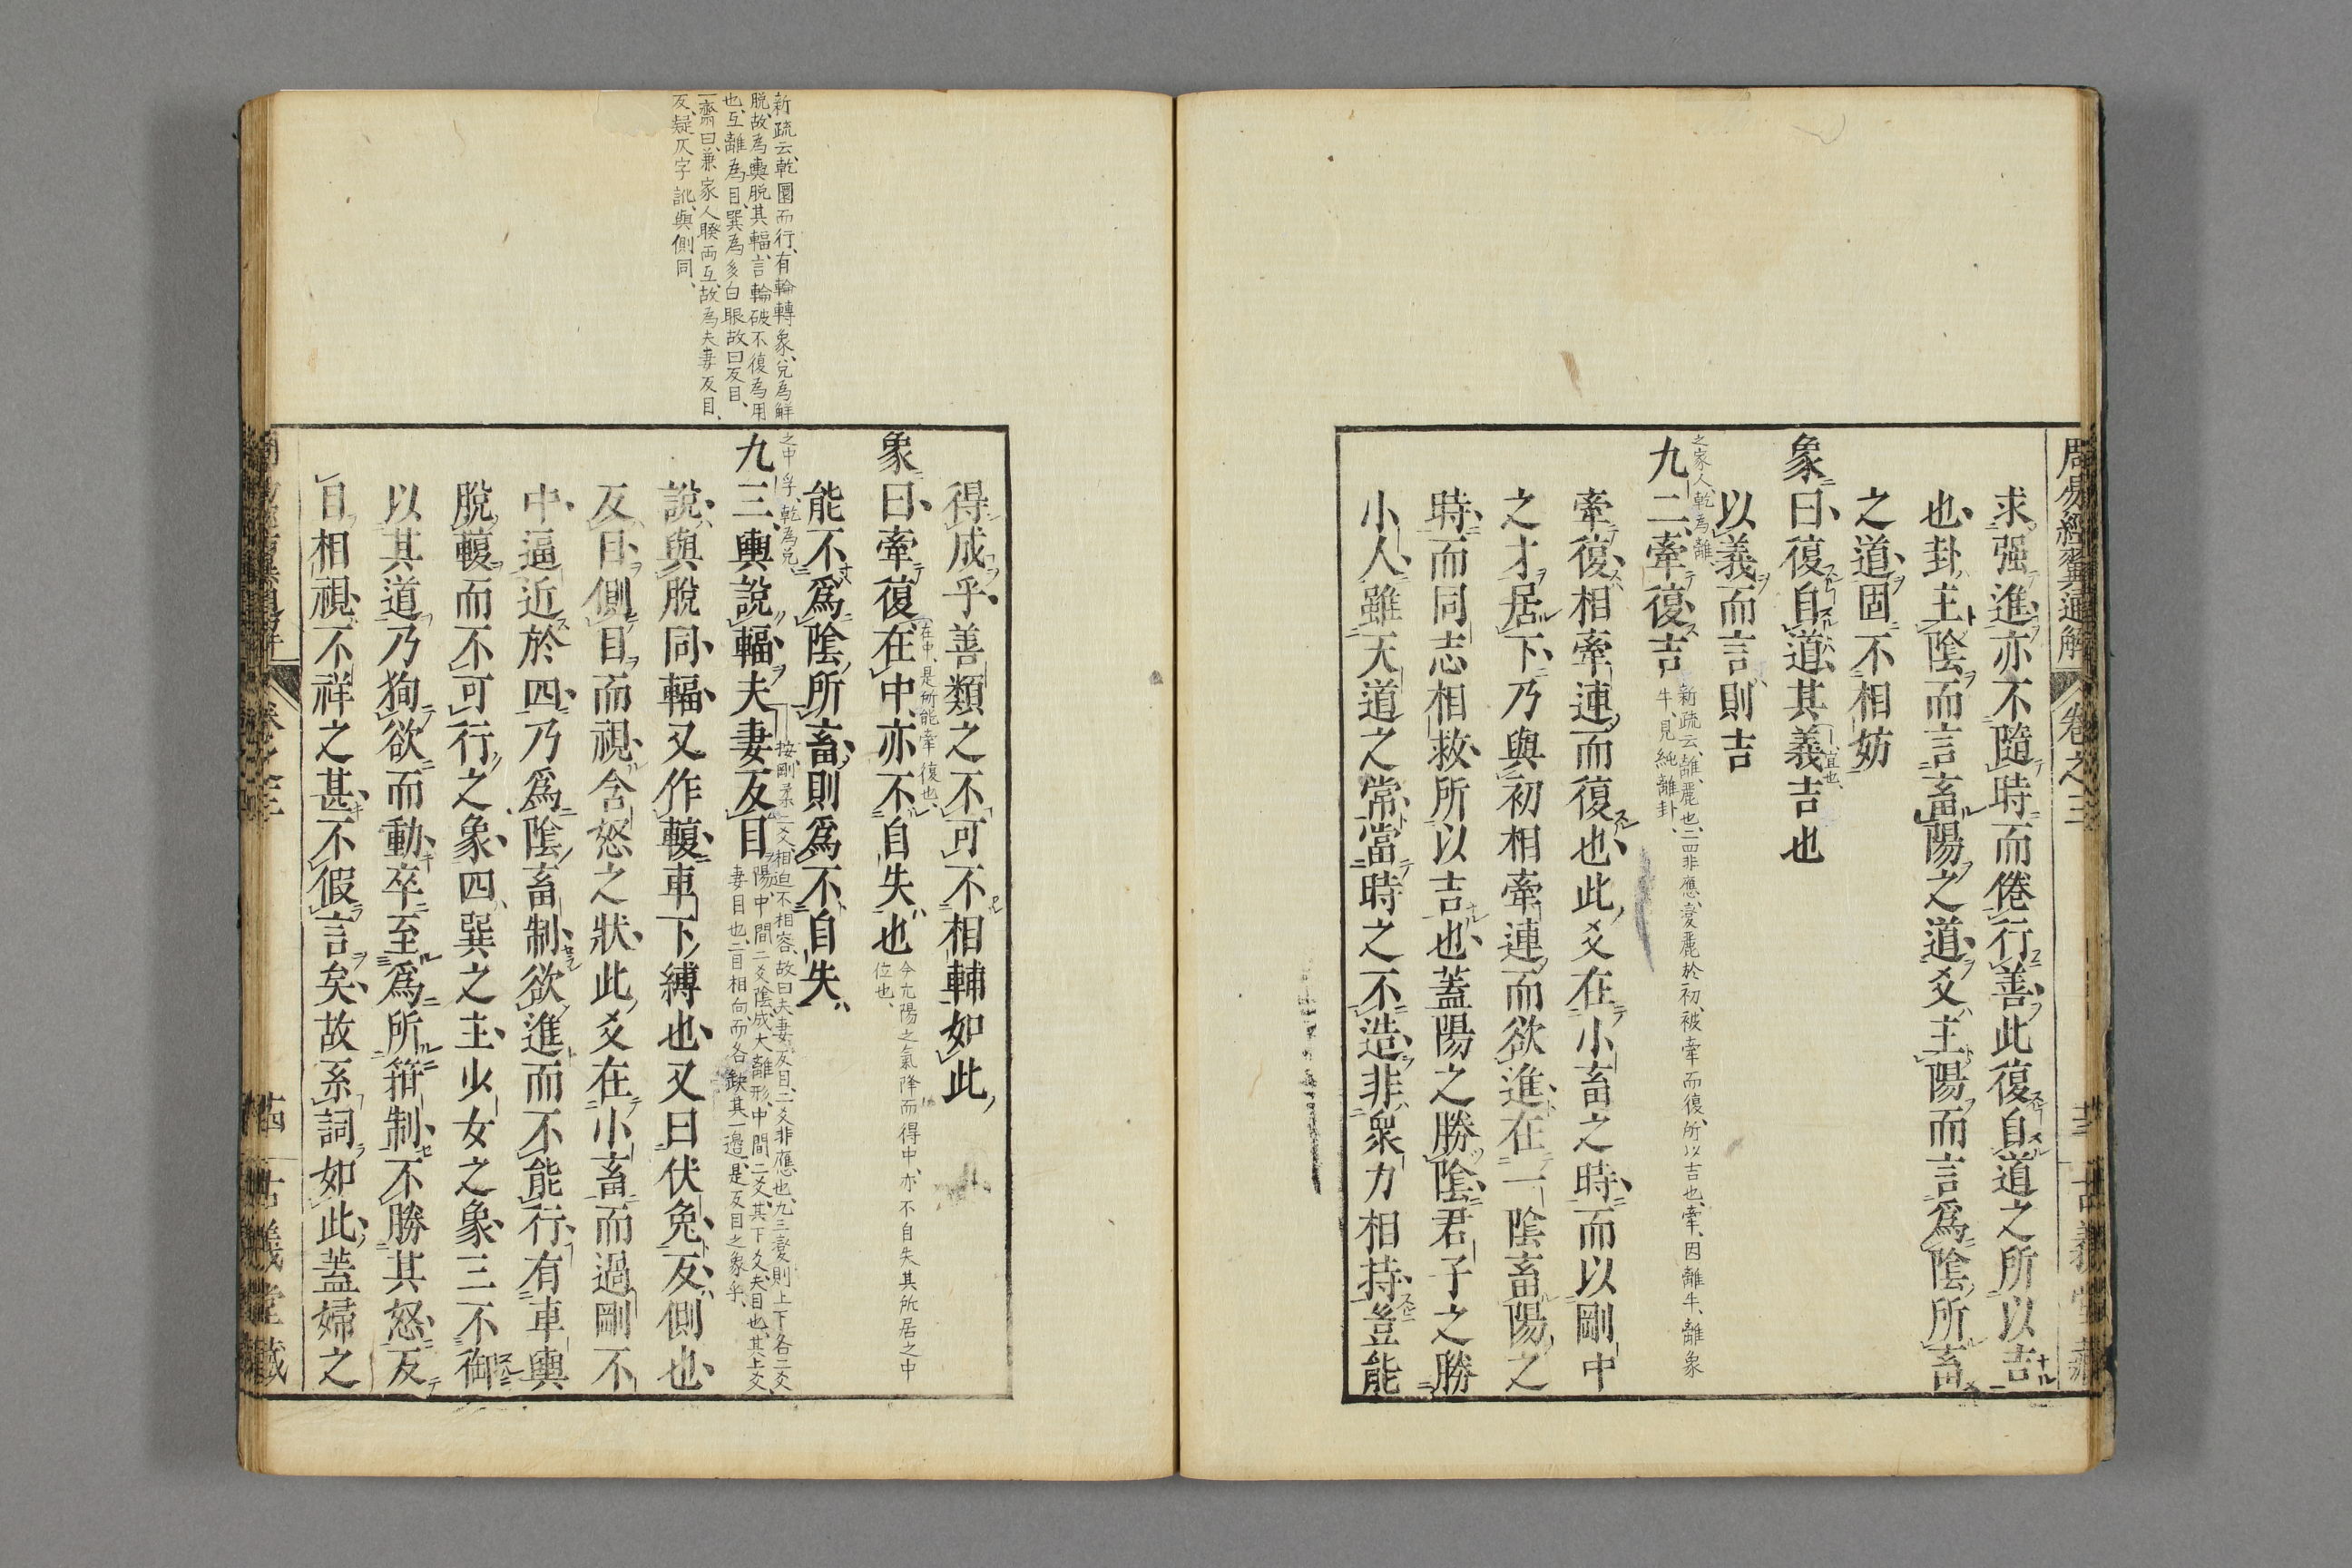 周易經翼通解 卷之三 古義堂藏
求强進亦不隨時而倦行善此復自道之所以吉
也卦主陰而言畜陽之道爻主陽而言爲陰所畜
之道固不相妨
象曰復自道其義吉也
宜也
以義而言則吉
之家人乾為離
九二牽復吉
新疏云離麗也二四非應變麗於初被牽而復所以吉也牽因離牛離象
牛見純離卦
牽復相牽連而復也此爻在小畜之時而以剛中
之才居下乃與初相牽連而欲進在一陰畜陽之
時而同志相救所以吉也蓋陽之勝陰君子之勝
小人雖天道之常當時之不造非衆力相持豈能
得成乎善類之不可不相輔如此
象曰牽復在中亦不自失也
在中是所能牽復也
今九陽之氣降而得中亦不自失其所居之中
位也
能不爲陰所畜則爲不自失
新疏云乾圜而行有輪轉象兌為鮮
脱故為輿脱其輻言輪破不復為用
也互離為目巽為多白眼故曰反目
一齋曰兼家人睽両互故為夫妻反目
反疑仄字訛與側同
之中孚乾為兌
九三輿說輻夫妻反目
按剛柔二爻相迫不相容故曰夫妻反目二爻非應也九三變則上下各二爻
陽中間二爻陰成大離形中間二爻其下爻夫目也其上爻
妻目也二目相向而各缺其一邊是反目之象乎
說與脫同輻又作輹車下縛也又曰伏兔反側也
反目側目而視含怒之狀此爻在小畜而過剛不
中逼近於四乃爲陰畜制欲進而不能行有車輿
脫輹而不可行之象四巽之主少女之象三不御
以其道乃狥欲而動卒至爲所箝制不勝其怒反
目相視不祥之甚不假言矣故系詞如此蓋婦之
卷之三 古義堂藏